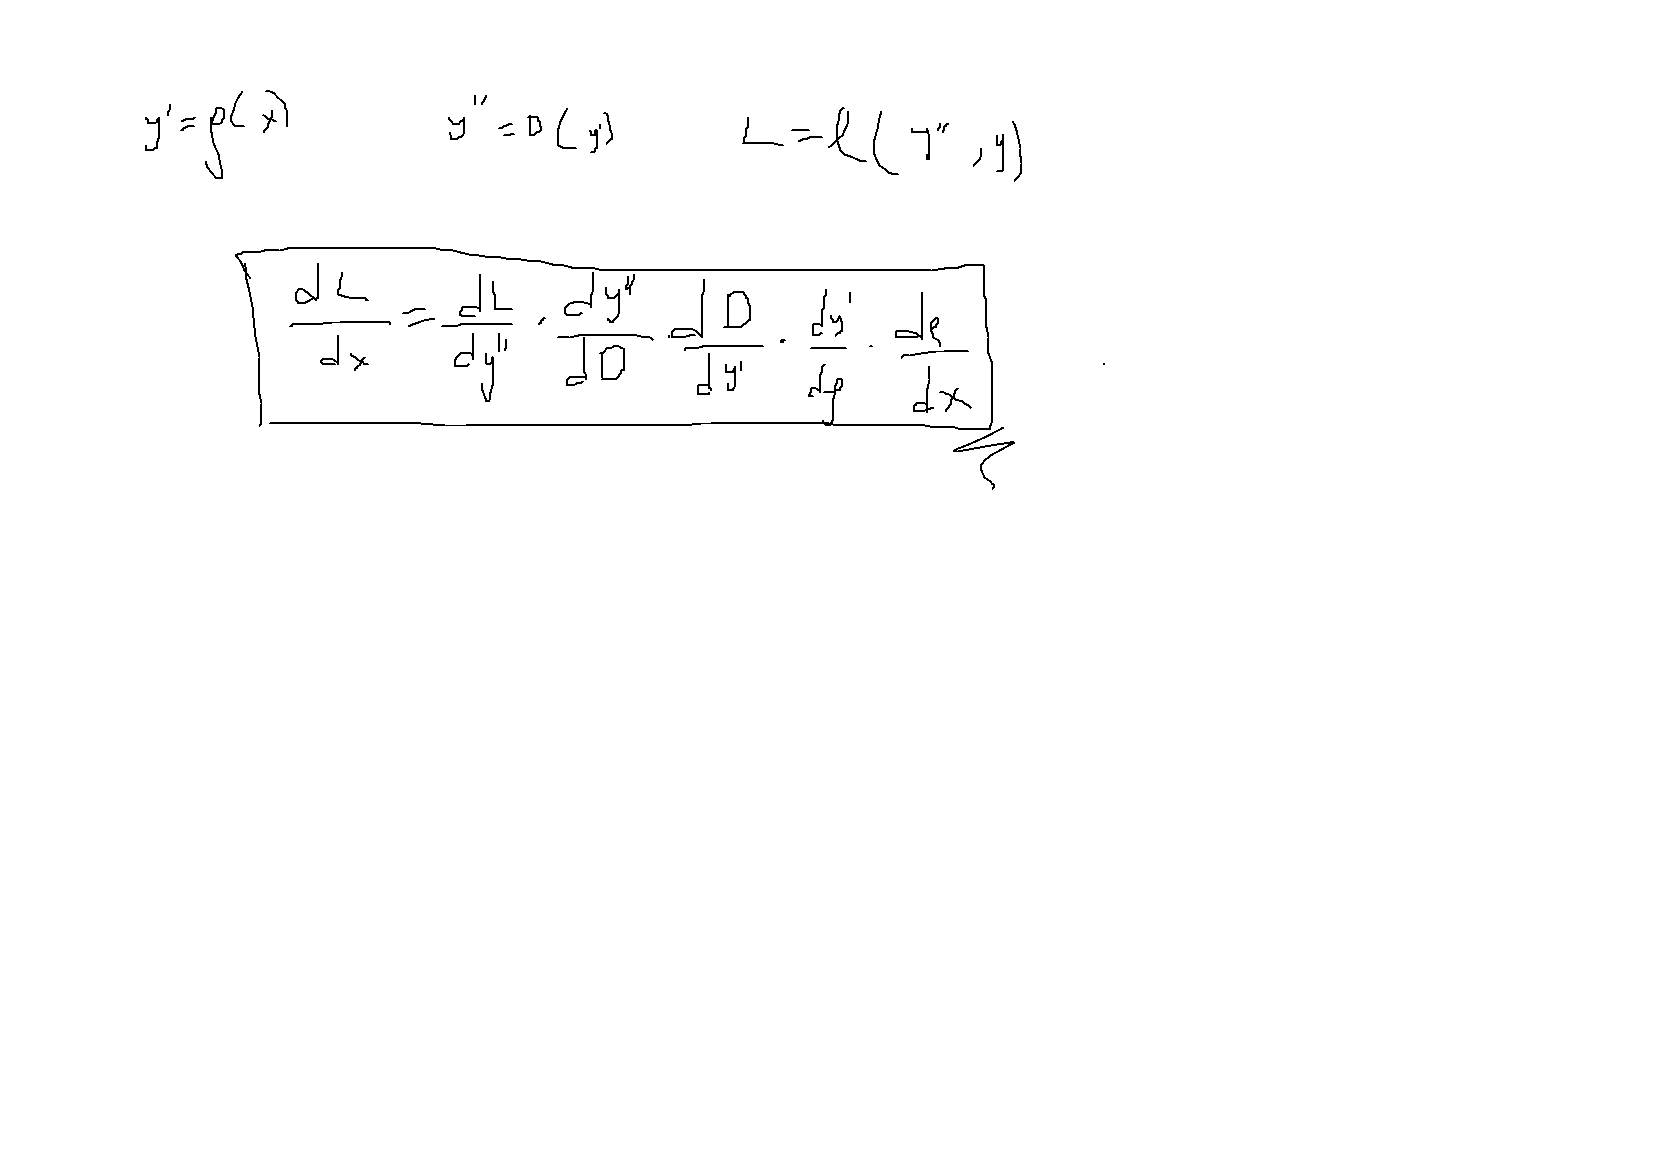 y' = ρ(x) y'' = D(y') L = ℓ(y'', y)
dL/dx = dL/dy'' · dy''/dD · dD/dy' · dy'/dρ · dρ/dx